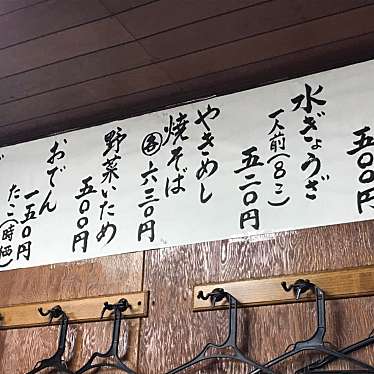 五〇〇円
水ぎょうざ
一人前(8こ)
五二〇円
やきめし
焼そば
各 六三〇円
野菜いため
五〇〇円
おでん
一五〇円
たこ(時価)